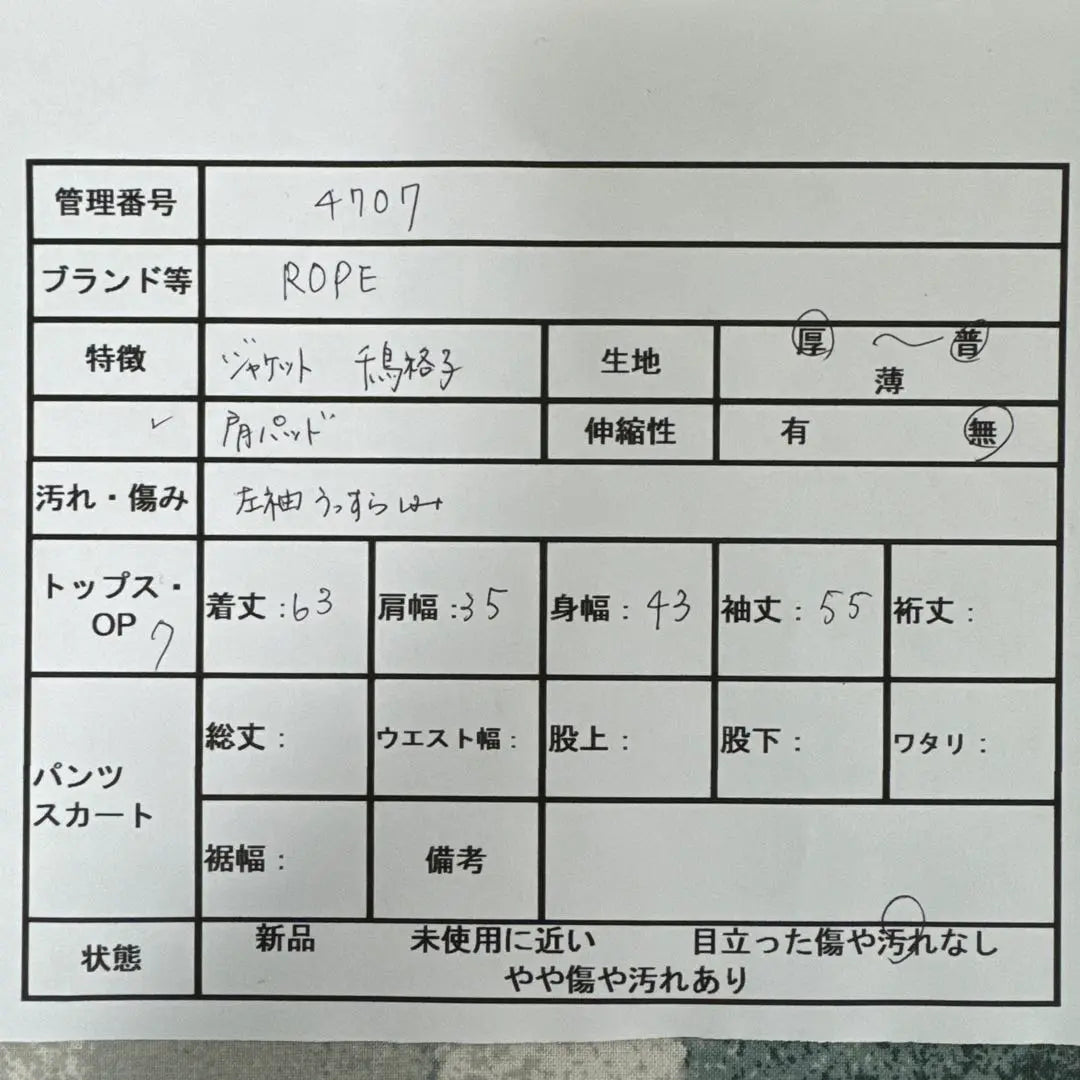 管理番号 4707
ブランド等 ROPE
特徴 ジャケット 千鳥格子 生地 厚 〜 普
薄
✓ 肩パッド 伸縮性 有 無
汚れ・傷み 左袖うっすらしみ
トップス・
OP 7 着丈:63 肩幅:35 身幅:43 袖丈:55 裄丈:
総丈: ウエスト幅: 股上: 股下: ワタリ:
パンツ
スカート
裾幅: 備考
状態 新品 未使用に近い 目立った傷や汚れなし
やや傷や汚れあり